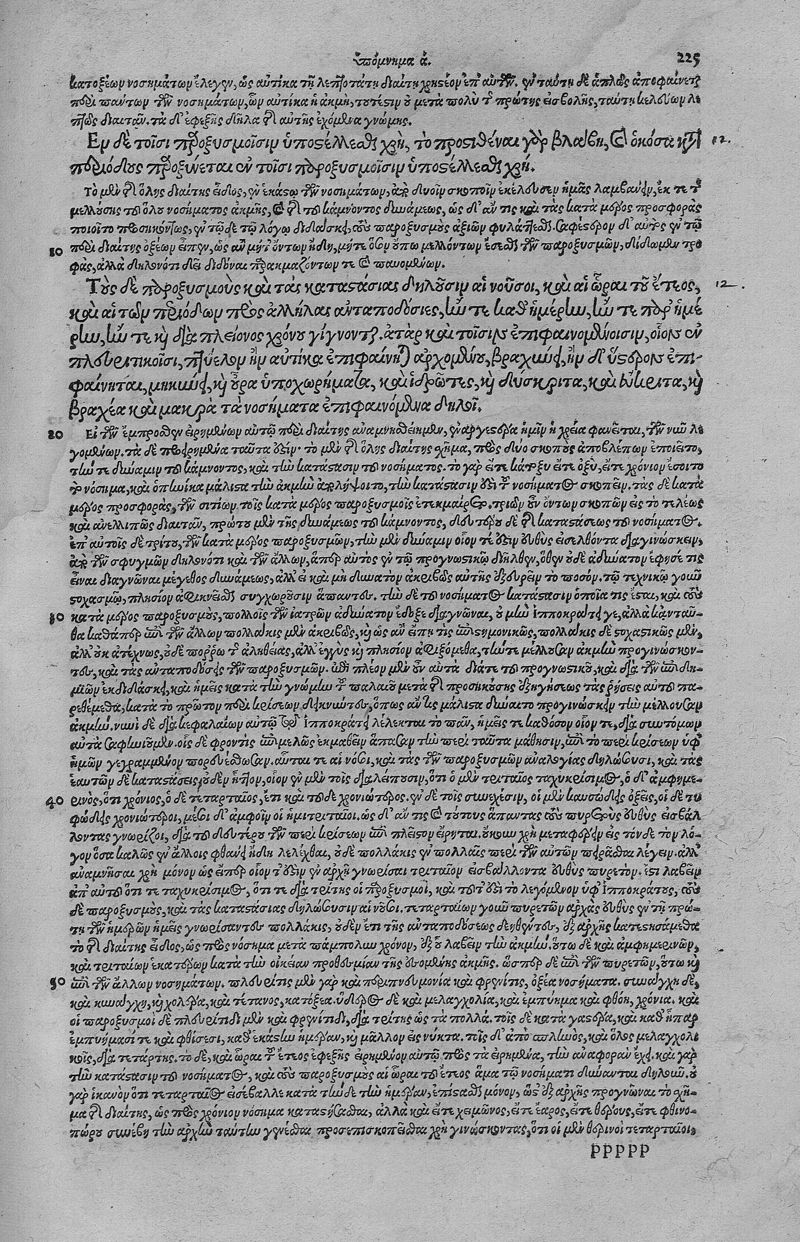 Ὑπόμνημα ά. 225
κατοξέων νοσημάτων ἔλεγεν, ὡς αὐτίκα τῇ λεπτοτάτῃ διαίτῃ χρηστέον ἐπ' αὐτῶν. ἐν ταύτῃ δὲ ἁπλῶς ἀποφαίνεται
περὶ πάντων τῶν νοσημάτων, ὧν αὐτίκα ἡ ἀκμὴ, τουτέστιν οὐ μετὰ πολὺ τῆς πρώτης εἰσβολῆς, ταύτῃ κελεύων λε
πτῶς διαιτᾶν. τὰ δ' ἐφεξῆς δῆλα τῆς αὐτῆς ἐχόμενα γνώμης.
Ἐν δὲ τοῖσι παροξυσμοῖσιν ὑποστέλλεσθαι χρὴ, τὸ προστιθέναι γὰρ βλάβη, καὶ ὁκόσα κατὰ 12.
περιόδους παροξύνεται ἐν τοῖσι παροξυσμοῖσιν ὑποστέλλεσθαι χρή.
Τὸ μὲν τῆς ὅλης διαίτης εἶδος, ἐν ἑκάστῳ τῶν νοσημάτων, ἀπὸ δυοῖν σκοποῖν ἐκέλευσεν ἡμᾶς λαμβάνειν, ἔκ τε τῆς
μελλούσης τοῦ ὅλου νοσήματος ἀκμῆς, καὶ τῆς τοῦ κάμνοντος δυνάμεως, ὡς δ' ἄν τις καὶ τὰς κατὰ μέρος προσφορὰς
ποιοῖτο προσηκόντως, ἐν τῷδε τῷ λόγῳ διδάσκει, τοὺς παροξυσμοὺς ἀξιῶν φυλάττεσθαι. σαφέστερον δ' αὐτὸς ἐν τῷ
10 περὶ διαίτης ὀξέων εἶπεν, ὡς ἂν μήτ' ὄντων ἤδη, μήτε ὅσον οὔπω μελλόντων ἔσεσθαι τῶν παροξυσμῶν, διδῶμεν τρο
φὰς, ἀλλὰ δηλονότι δεῖ διδόναι παρακμαζόντων τε καὶ παυομένων.
Τοὺς δὲ παροξυσμοὺς καὶ τὰς καταστάσιας δηλοῦσιν αἱ νοῦσοι, καὶ αἱ ὧραι τοῦ ἔτεος, 12
καὶ αἱ τῶν περιόδων πρὸς ἀλλήλας ἀνταποδόσιες, ἤν τε καθ' ἡμέρην, ἤν τε παρ' ἡμέ
ρην, ἤν τε καὶ διὰ πλείονος χρόνου γίγνονται. ἀτὰρ καὶ τοῖσιν ἐπιφαινομένοισιν, οἷον ἐν
πλευριτικοῖσι, πτύελον ἢν αὐτίκα ἐπιφαίνηται ἀρχομένου, βραχύνει, ἢν δ' ὕστερον ἐπι-
φαίνηται, μηκύνει, καὶ οὖρα ὑποχωρήματα, καὶ ἱδρῶτες, καὶ δύσκριτα, καὶ εὔκριτα, καὶ
βραχέα καὶ μακρὰ τὰ νοσήματα ἐπιφαινόμενα δηλοῖ.
20 Εἰ τῶν ἔμπροσθεν εἰρημένων αὐτῷ περὶ διαίτης ἀναμνησθείημεν, ἐναργεστέρα ἡμῖν ἡ χρεία φανεῖται, τῶν νῦν λε
γομένων. τὰ δὲ προειρημένα ταῦτα ἐστίν· τὸ μὲν τῆς ὅλης διαίτης σχῆμα, πρὸς δύο σκοποὺς ἀποβλέπων ἐποιεῖτο,
τήν τε δύναμιν τοῦ κάμνοντος, καὶ τὴν κατάστασιν τοῦ νοσήματος. τὸ γὰρ εἴτε κάτοξυ εἴτε ὀξὺ, εἴτε χρόνιον ἔσοιτο
τὸ νόσημα, καὶ ὁπηνίκα μάλιστα τὴν ἀκμὴν ἀπολήψοιτο, τὴν κατάστασιν ἐστὶ τοῦ νοσήματος σκοπεῖν. τὰς δὲ κατὰ
μέρος προσφορὰς, τῶν σιτίων. τοῖς κατὰ μέρος παροξυσμοῖς ἐτεκμαίρετο. τριῶν οὖν ὄντων σκοπῶν εἰς τὸ τελέως
καὶ ἀνελλιπῶς διαιτᾶν, πρώτου μὲν τῆς δυνάμεως τοῦ κάμνοντος, δευτέρου δὲ τῆς καταστάσεως τοῦ νοσήματος.
ἐπ' αὐτοῖς δὲ τρίτου, τῶν κατὰ μέρος παροξυσμῶν, τὴν μὲν δύναμιν οἷόν τε ἐστὶν εὐθὺς εἰσελθόντα διαγινώσκειν,
ἀπὸ τῶν σφυγμῶν δηλονότι καὶ τῶν ἄλλων, ἅπερ αὐτὸς ἐν τῷ προγνωστικῷ διῆλθεν, ὅθεν οὐδὲ ἀδύνατον ἔφησέ τις
εἶναι διαγνῶναι μέγεθος δυνάμεως, ἀλλ' εἰ καὶ μὴ δυνατὸν ἀκριβῶς αὐτῆς ἐξευρεῖν τὸ ποσὸν. τῷ τεχνικῷ γοῦν
στοχασμῷ, πλησίον ἀφικνεῖσθαι συγχωροῦσιν ἅπαντες. τὴν δὲ τοῦ νοσήματος κατάστασιν ὁποία τις ἔσται, καὶ τοὺς
30 κατὰ μέρος παροξυσμοὺς, πολλοῖς τῶν ἰατρῶν ἀδύνατον ἔδοξε διαγνῶναι, οὐ μὴν Ἱπποκράτει γε, ἀλλὰ κἀνταῦ-
θα καθάπερ ἐπὶ τῶν ἄλλων πολλάκις μὲν ἀκριβῶς, καὶ ὡς ἂν εἴπῃ τις ἐπιστημονικῶς, πολλάκις δὲ στοχαστικῶς μὲν,
ἀλλ' οὐκ ἀτέχνως, οὐδὲ πόῤῥω τῆς ἀληθείας, ἀλλ' ἐγγὺς καὶ πλησίον ἀφιξόμεθα, τήν τε μέλλουσαν ἀκμὴν προγινώσκον-
τες, καὶ τὰς ἀνταποδόσεις τῶν παροξυσμῶν. ἐπὶ πλέον μὲν οὖν αὐτὰ διά τε προγνωστικοῦ, καὶ διὰ τῶν ἐπιδη-
μιῶν ἐκδιδάσκει, καὶ ἡμεῖς κατὰ τὴν γνώμην τοῦ παλαιοῦ μετὰ τῆς προσηκούσης ἐξηγήσεως τὰς ῥήσεις αὐτοῦ πα-
ρεθέμεθα, κατὰ τὸ πρῶτον περὶ κρίσεων δεικνύντες, ὅπως ἄν τις μάλιστα δύναιτο προγινώσκειν τὴν μέλλουσαν
ἀκμήν. νυνὶ δὲ διὰ κεφαλαίων αὐτῷ τῷ Ἱπποκράτει λέλεκται τὸ πᾶν, ἡμεῖς τε καθόσον οἷόν τε, διὰ συντόμων
αὐτὰ σαφηνιοῦμεν. οἷς δὲ φροντὶς ἐπιμελῶς ἐκμαθεῖν ἅπασαν τὴν περὶ ταῦτα μάθησιν, ἐπὶ τὸ περὶ κρίσεων ὑφ'
ἡμῶν γεγραμμένον πορευέσθωσαν. αὗταί τε αἱ νόσοι, καὶ τὰς τῶν παροξυσμῶν ἀναλογίας δηλώσουσι, καὶ τὰς
ἑαυτῶν δὲ καταστάσεις, οὐδὲν ἧττον, οἷον ἐν μὲν τοῖς διαλείπουσιν, ὅτι ὁ μὲν τριταῖος ταχυκρίσιμος, ὁ δ' ἀμφημε-
40 ρινὸς, ὅτι χρόνιος, ὁ δὲ τεταρταῖος, ἔτι καὶ τοῦδε χρονιώτερος. ἐν δὲ τοῖς συνεχέσιν, οἱ μὲν καυσώδεις ὀξεῖς, οἱ δὲ τυ
φώδεις χρονιώτεροι, μέσοι δ' ἀμφοῖν οἱ ἡμιτριταῖοι. ὡς δ' ἄν τις τοὺς τύπους ἅπαντας τοὺς πυρετοὺς εὐθὺς εἰσβάλ
λοντας γνωρίζοι, διὰ τοῦ δευτέρου τῶν περὶ κρίσεων ἐπὶ πλεῖστον εἴρηται. οὔκουν χρὴ μεταφέρειν εἰς τόνδε τὸν λό-
γον ὅσα καλῶς ἐν ἄλλοις φθάνει ἤδη λελέχθαι, οὐδὲ πολλάκις ἐν πολλαῖς περὶ τῶν αὐτῶν πειρᾶσθαι λέγειν. ἀλλ'
ἀναμνῆσαι χρὴ μόνον ὡς εἴπερ οἷόν τ' ἐστὶν ἐν ἀρχῇ γνωρίσαι τριταῖον εἰσβάλλοντα εὐθὺς πυρετὸν. ἔστι λαβεῖν
ἀπ' αὐτοῦ ὅτι τε ταχυκρίσιμος, ὅτι τε διὰ τρίτης οἱ παροξυσμοὶ, καὶ τοῦτ' ἐστὶ τὸ λεγόμενον ὑφ' Ἱπποκράτους, τοὺς
δὲ παροξυσμοὺς, καὶ τὰς καταστάσιας δηλώσουσιν αἱ νόσοι. τεταρταίων γοῦν πυρετῶν ἀρχὰς εὐθὺς ἐν τῇ πρώ-
τῃ τῶν ἡμερῶν ἡμεῖς γνωρίσαντες πολλάκις, οὐδὲν ἔτι τῆς ἀνταποδόσεως δεηθέντες, ἐξ ἀρχῆς κατεστησάμεθα
τὸ τῆς διαίτης εἶδος, ὡς πρὸς νόσημα μετὰ πάμπολυν χρόνον, ἐξ οὗ λαβεῖν τὴν ἀκμήν. οὕτω δὲ καὶ ἀμφημερινῶν,
καὶ τριταίων ἑκατέρων κατὰ τὴν οἰκείαν προθεσμίαν τῆς ἐσομένης ἀκμῆς. ὥσπερ δὲ ἐπὶ τῶν πυρετῶν, οὕτω καὶ
50 ἐπὶ τῶν ἄλλων νοσημάτων. πλευρῖτις μὲν γὰρ καὶ περιπνευμονία καὶ φρενῖτις, ὀξέα νοσήματα. συνάγχη δὲ,
καὶ κυνάγχη, καὶ χολέρα, καὶ τέτανος, κατόξεα. ὕδερος δὲ καὶ μελαγχολία, καὶ ἐμπύημα καὶ φθόη, χρόνια. καὶ
οἱ παροξυσμοὶ δὲ πλευρίτιδι μὲν καὶ φρενίτιδι, διὰ τρίτης ὡς τὰ πολλά. τοῖς δὲ κατὰ γαστέρα, καὶ καθ' ἧπαρ
ἐμπυήμασί τε καὶ φθίσεσι, καθ' ἑκάστην ἡμέραν, καὶ μᾶλλον εἰς νύκτα. τοῖς δ' ἀπὸ σπληνὸς, καὶ ὅλως μελαγχολι
κοῖς, διὰ τετάρτης. τὸ δὲ, καὶ ὧραι τοῦ ἔτεος ἐφεξῆς εἰρημένον αὐτῷ πρὸς τὰ εἰρημένα, τὴν ἀναφορὰν ἔχει. καὶ γὰρ
τὴν κατάστασιν τοῦ νοσήματος, καὶ τοὺς παροξυσμοὺς αἱ ὧραι τοῦ ἔτεος ἅμα τῷ νοσήματι δύνανται δηλοῦν. οὐ
γὰρ ἱκανὸν ὅτι τεταρταῖος εἰσέβαλλε κατὰ τήνδε τὴν ἡμέραν, ἐπίστασθαι μόνον, ὡς ἐξ ἀρχῆς προγνῶναι τὸ σχῆ-
μα τῆς διαίτης, ὡς πρὸς χρόνιον νόσημα καταστήσασθαι, ἀλλὰ καὶ εἴτε χειμῶνος, εἴτε ἔαρος, εἴτε θέρους, εἴτε φθινο-
πώρου συνέβη τὴν ἀρχὴν ταύτην γενέσθαι προσεπισκοπεῖσθαι χρὴ γινώσκοντας, ὅτι οἱ μὲν θερινοὶ τεταρταῖοι,
PPPPP